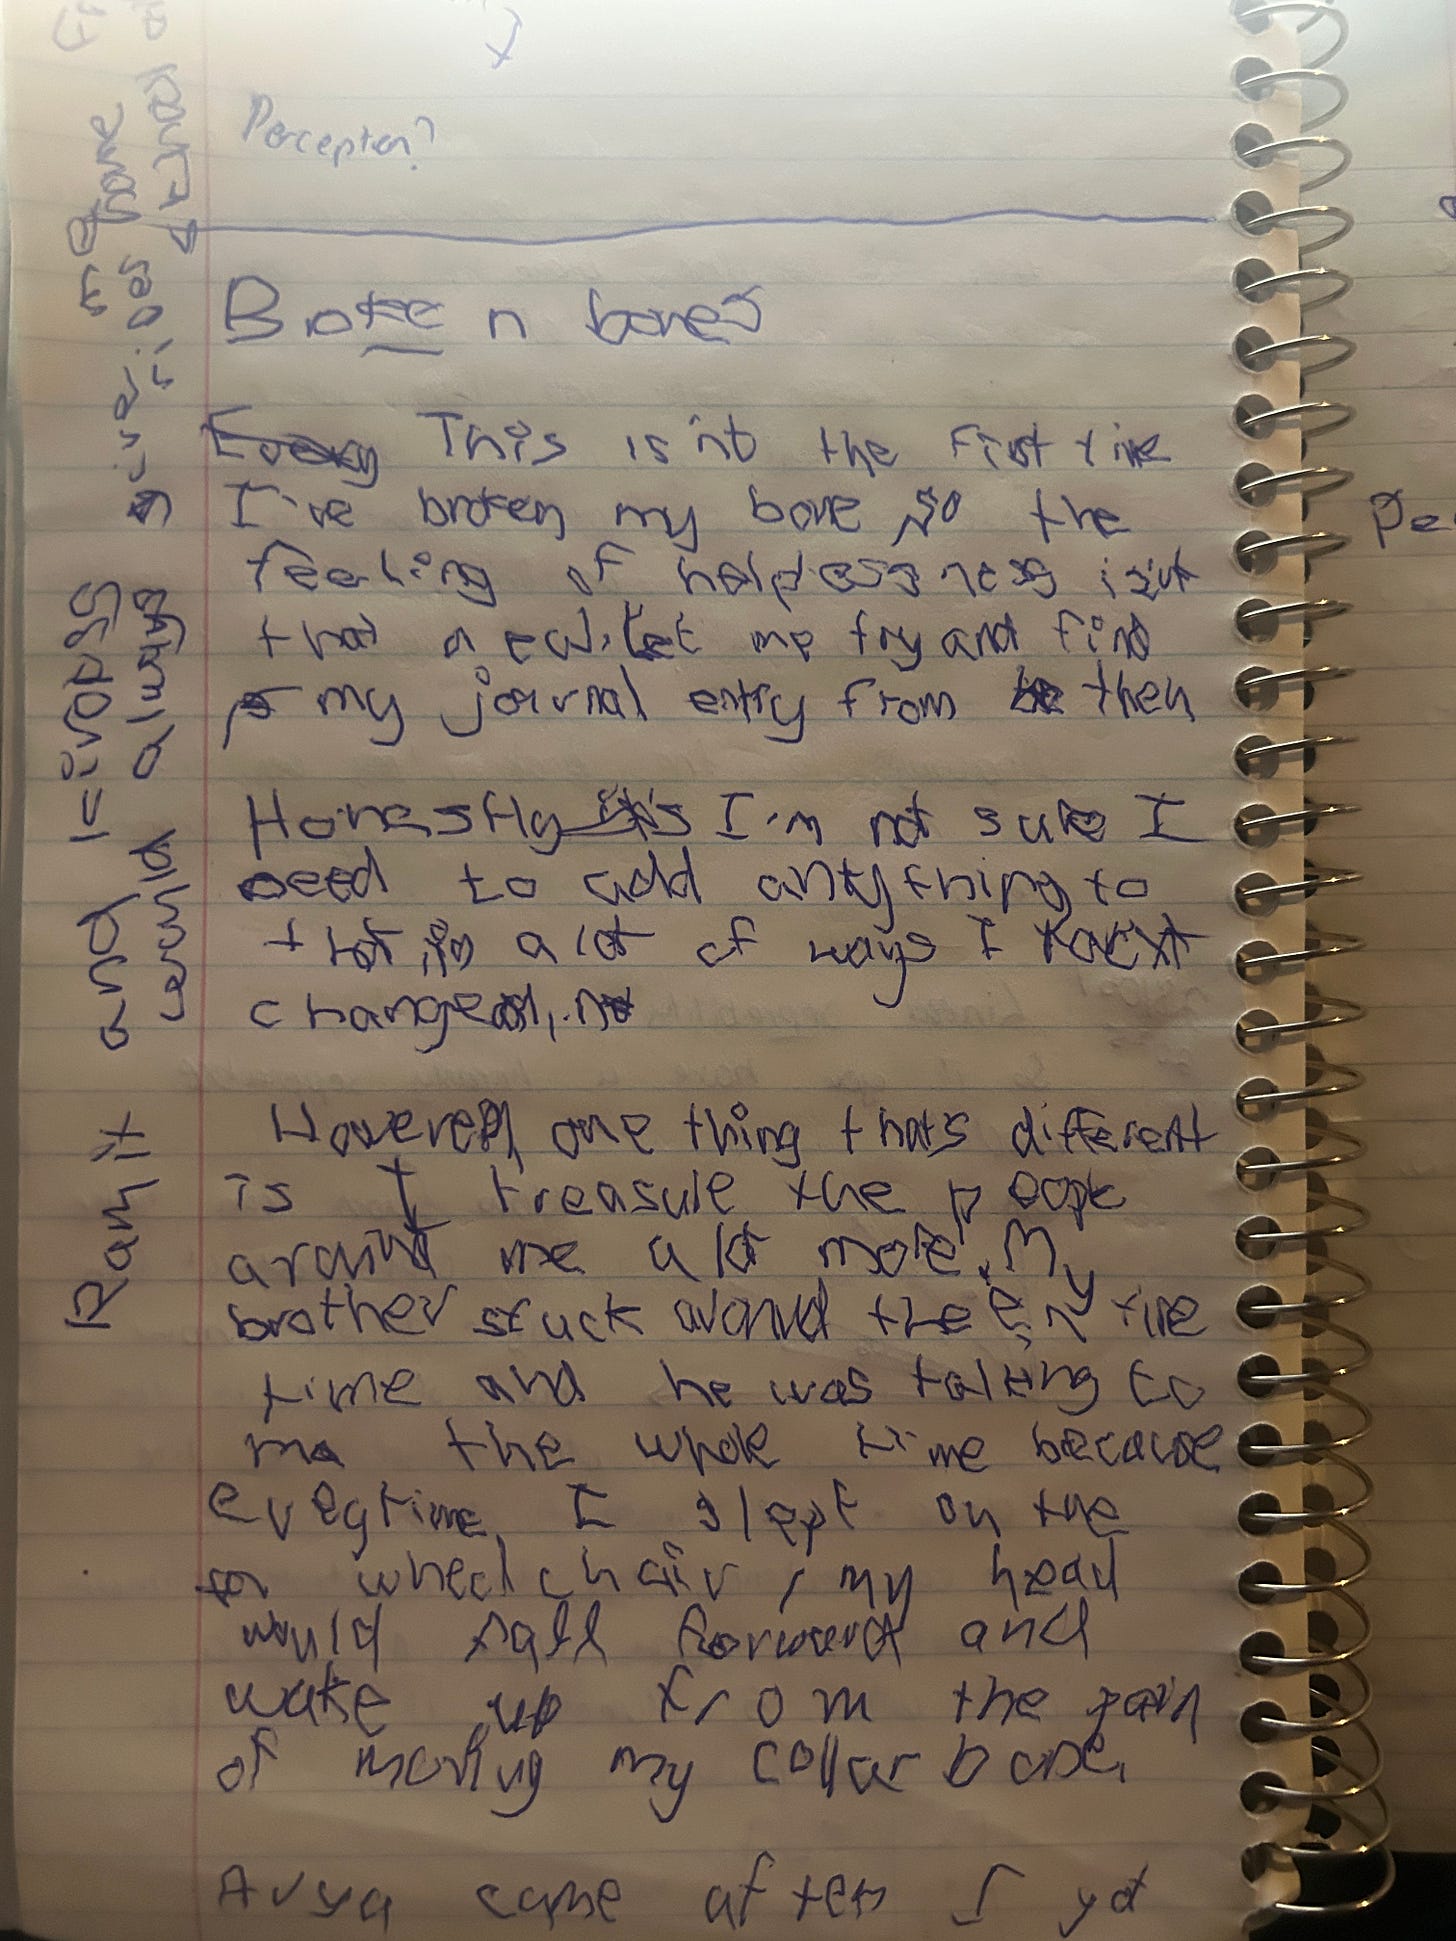 Percepton?
Broken bones
Every This isn't the first time
I've broken my bone, so the
feeling of helplessness isn't
that new. Let me try and find
my journal entry from then
Honestly it's I'm not sure I
need to add anything to
that in a lot of ways I
changed,
However, one thing thats different
is I treasure the people
around me a lot more. My
brother stuck around the entire
time and he was talking to
me the whole time because
evertime, I slept on the
for wheelchair, my head
would fall forward and
wake up from the pain
of moving my collar bone.
Avya came after I got
Ranjit and
would always giving me
Pe